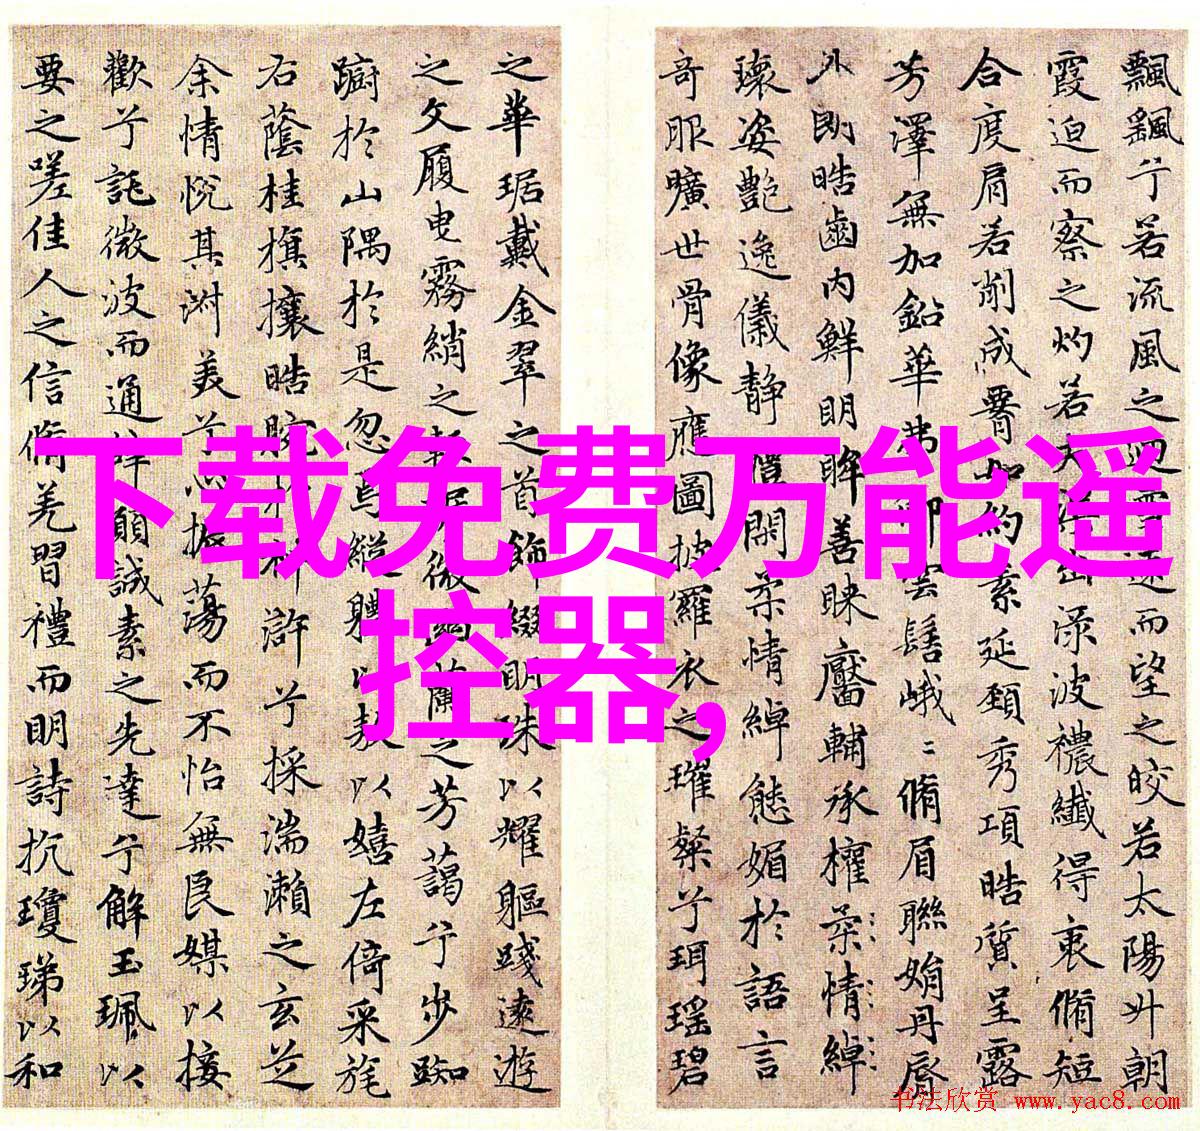 飄飖兮若流風之迴雪遠而望之皎若太陽升朝
霞迫而察之灼若夫渠出淥波穠纖得衷脩短
合度肩若削成署如約素延頸秀項皓質呈露
芳澤無加鉛華弗御雲髻峨〻脩眉聯娟丹脣
外朗皓齒內鮮明眸善睞靨輔承權柔情綽
瓌姿艷逸儀靜體閑柔情綽態媚於語言
奇服曠世骨像應圖披羅衣之璀粲兮珥瑤碧
之華琚戴金翠之首飾綴明珠以耀軀踐遠遊
之文履曳霧綃之輕裾微幽蘭之芳藹兮步踟
蹰於山隅於是忽焉縱體以敖以嬉左倚采旄
右蔭桂旗攘皓腕於神滸兮採湍瀨之玄芝
余情悅其淑美兮心振蕩而不怡無良媒以接
歡兮託微波而通辭願誠素之先達兮解玉珮以
要之嗟佳人之信脩羌習禮而明詩抗瓊珶以和
下载免费万能遥
控器,
书法欣赏 www.yac8.com